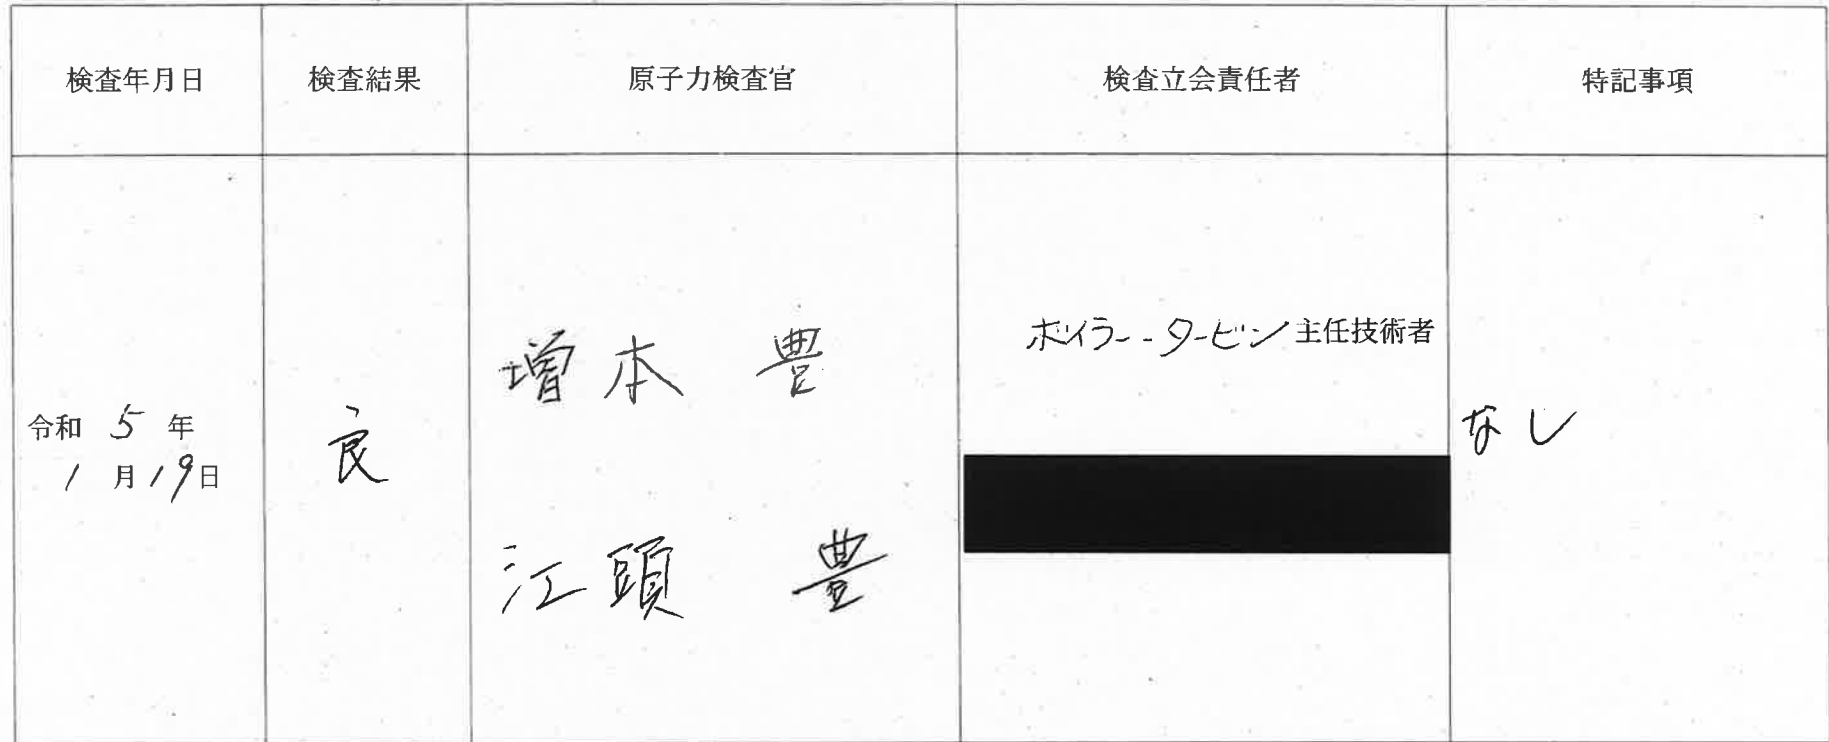 検査年月日
検査結果
原子力検査官
検査立会責任者
特記事項
令和 5 年
1 月 19 日
良
増本 豊
江頭 豊
ボイラー・タービン 主任技術者
なし